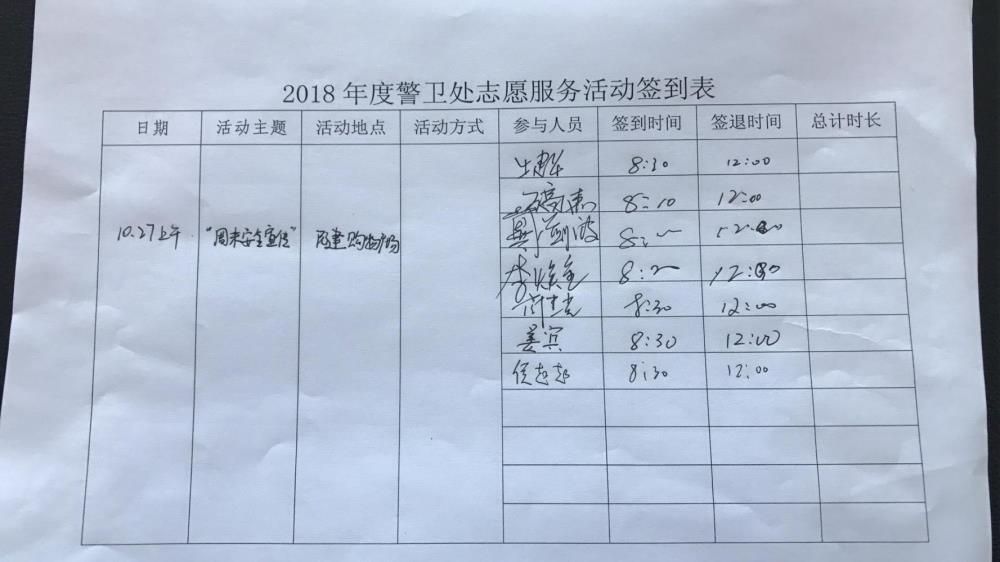 2018年度警卫处志愿服务活动签到表
日期 活动主题 活动地点 活动方式 参与人员 签到时间 签退时间 总计时长
8:30 12:00
8:10 12:00
10.27上午 "周末安全宣传" 购物广场 8:
李 8:2 12:00
8:30 12:00
姜宾 8:30 12:00
侯赵超 8:30 12:00